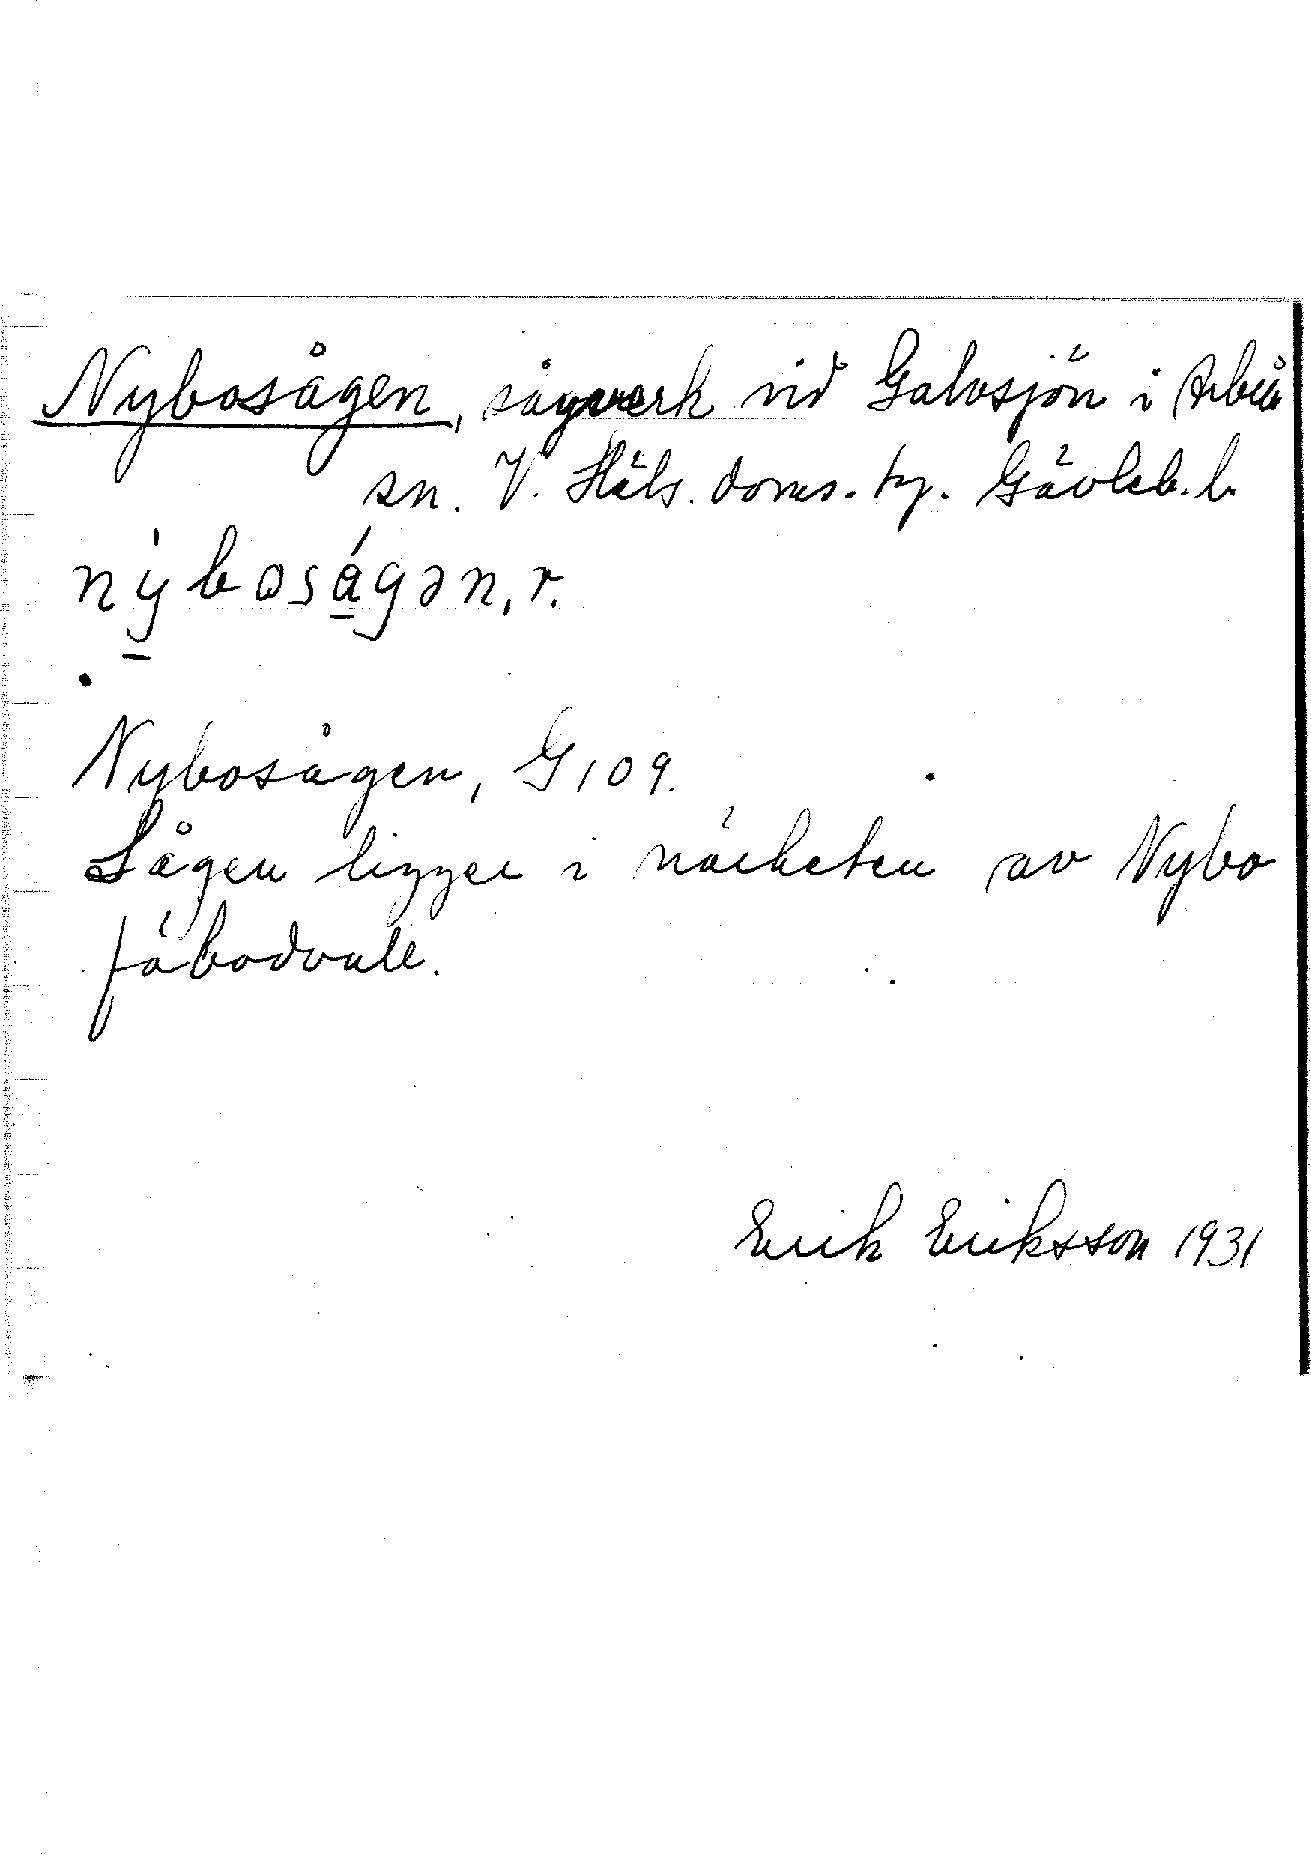 Nybosågen, sågverk vid Galvsjön i Arbrå
sn. V. Häls. doms. hg. Gävleb. l.
nýboságən, r.
Nybosågen, G 109.
Sågen ligger i närheten av Nybo
fäbodvall.
Erik Eriksson 1931